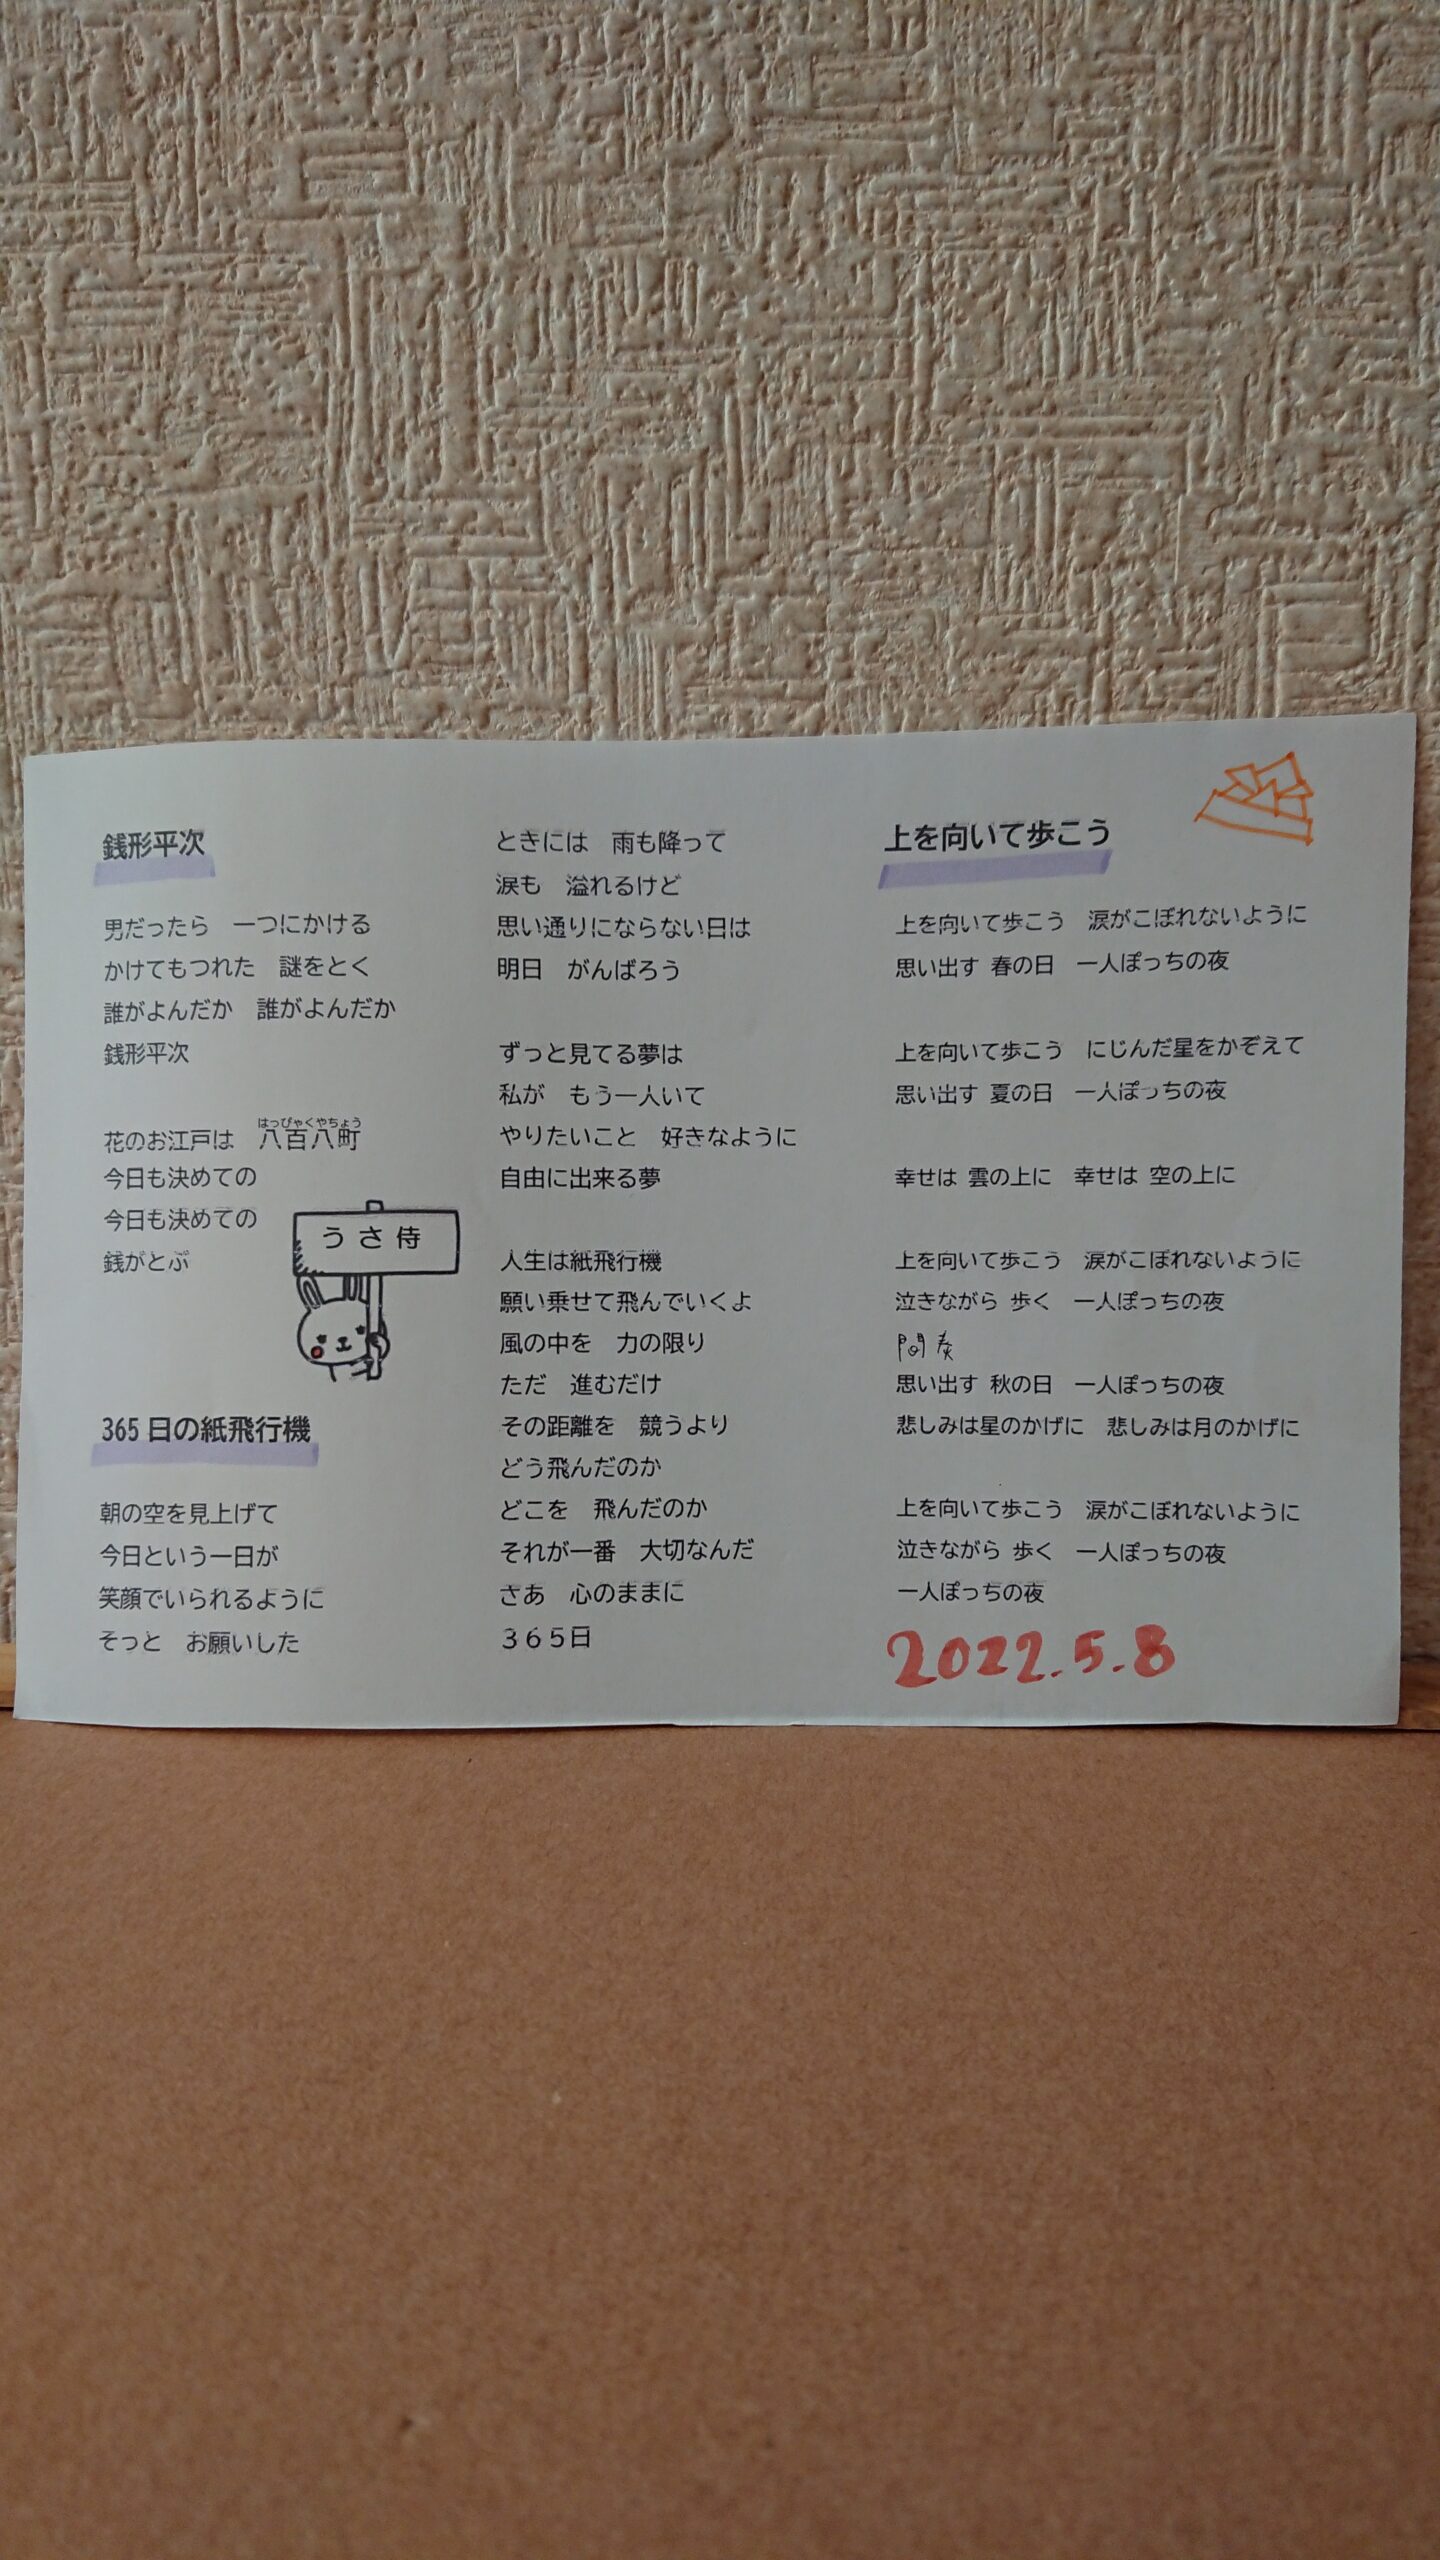 銭形平次
男だったら　一つにかける
かけてもつれた　謎をとく
誰がよんだか　誰がよんだか
銭形平次
はっぴゃくやちょう
花のお江戸は　八百八町
今日も決めての
今日も決めての
銭がとぶ
うさ侍
365日の紙飛行機
朝の空を見上げて
今日という一日が
笑顔でいられるように
そっと　お願いした
ときには　雨も降って
涙も　溢れるけど
思い通りにならない日は
明日　がんばろう
ずっと見てる夢は
私が　もう一人いて
やりたいこと　好きなように
自由に出来る夢
人生は紙飛行機
願い乗せて飛んでいくよ
風の中を　力の限り
ただ　進むだけ
その距離を　競うより
どう飛んだのか
どこを　飛んだのか
それが一番　大切なんだ
さあ　心のままに
３６５日
上を向いて歩こう
上を向いて歩こう　涙がこぼれないように
思い出す 春の日　一人ぽっちの夜
上を向いて歩こう　にじんだ星をかぞえて
思い出す 夏の日　一人ぽっちの夜
幸せは 雲の上に　幸せは 空の上に
上を向いて歩こう　涙がこぼれないように
泣きながら 歩く　一人ぽっちの夜
間奏
思い出す 秋の日　一人ぽっちの夜
悲しみは星のかげに　悲しみは月のかげに
上を向いて歩こう　涙がこぼれないように
泣きながら 歩く　一人ぽっちの夜
一人ぽっちの夜
2022.5.8